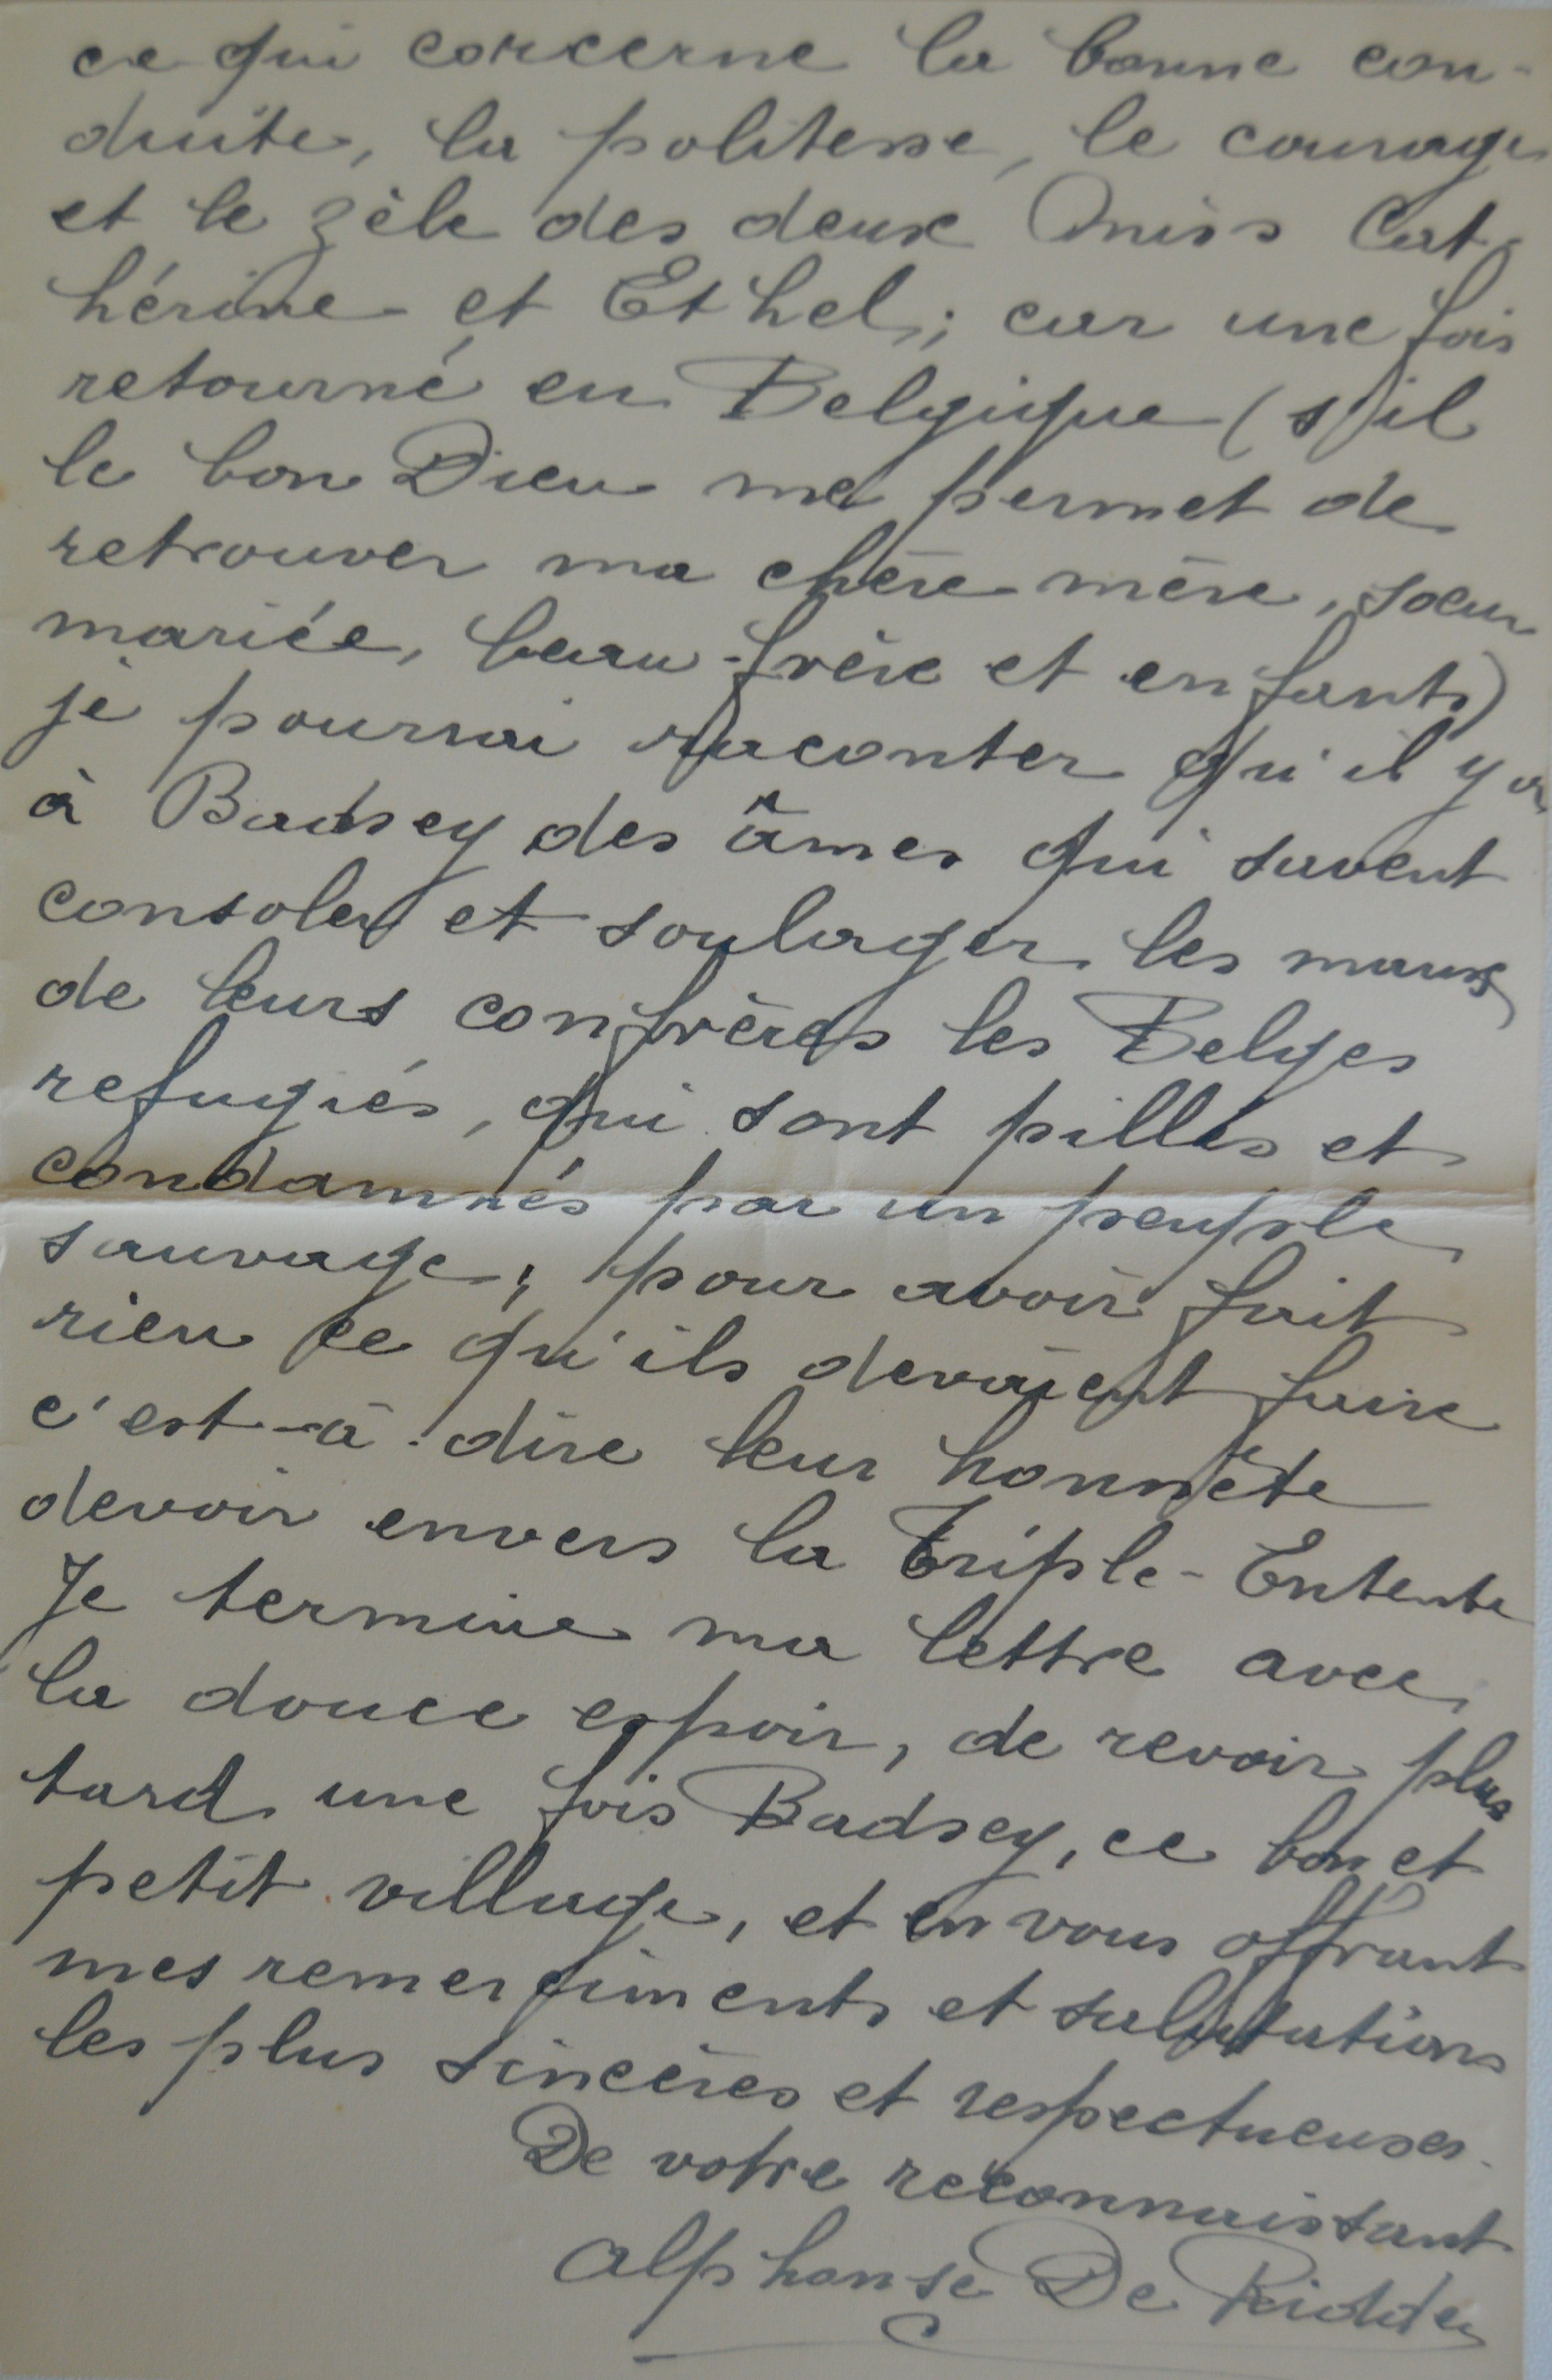 ce qui concerne la bonne con-
duite, la politesse, le courage
et le zèle des deux Miss Cat-
hérine et Ethel; car une fois
retourné en Belgique (s'il
le bon Dieu me permet de
retrouver ma chère mère, soeur
mariée, beau-frère et enfants)
je pourrai raconter qu'il y a
à Badsey des âmes qui savent
consoler et soulager les maux
de leurs confrères les Belges
refugiés, qui sont pillés et
condamnés par un peuple
sauvage; pour avoir fait
rien ce qu'ils devaient faire
c'est-à-dire leur honnête
devoir envers la Triple-Entente
Je termine ma lettre avec
la douce espoir, de revoir plus
tard une fois Badsey, ce bon et
petit village, et en vous offrant
mes remerciments et salutations
les plus sincères et respectueuses.
De votre reconnaissant
Alphonse De Ridder